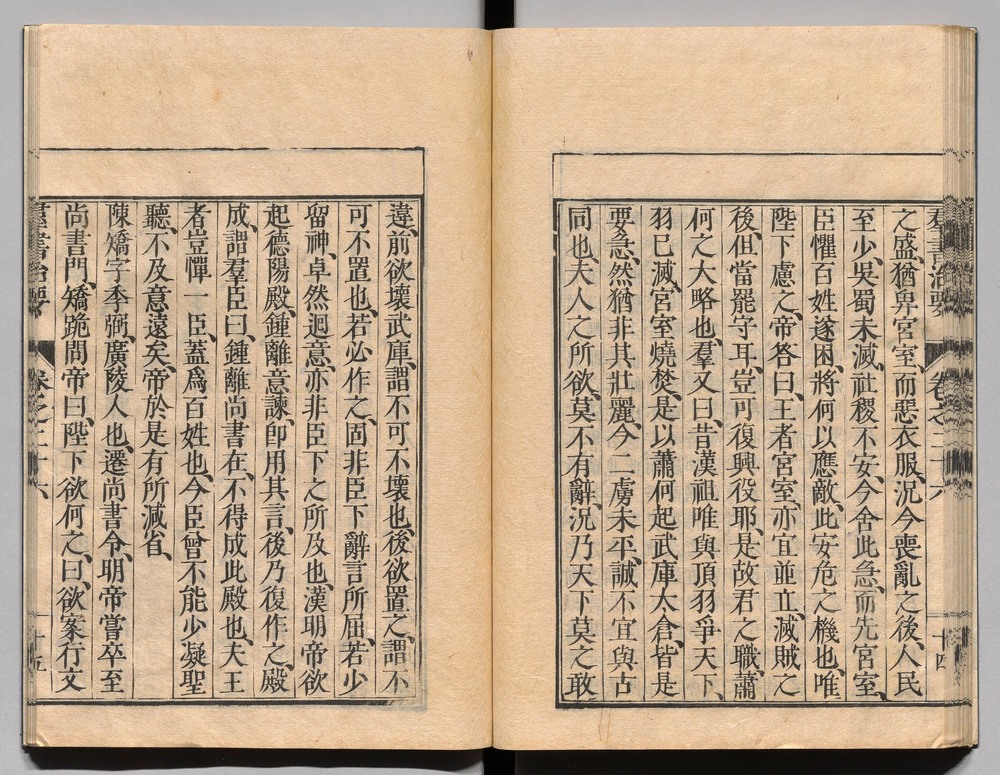 羣書治要 卷之二十六 十四
之盛、猶卑宮室、而惡衣服、況今喪亂之後、人民
至少、吳蜀未滅、社稷不安、今舍此急、而先宮室、
臣懼百姓遂困、將何以應敵、此安危之機也、唯
陛下慮之、帝答曰、王者宮室、亦宜並立、滅賊之
後、但當罷守耳、豈可復興役耶、是故君之職、蕭
何之大略也、羣又曰、昔漢祖唯與項羽爭天下、
羽已滅、宮室燒焚、是以蕭何起武庫太倉、皆是
要急、然猶非其壯麗、今二虜未平、誠不宜與古
同也、夫人之所欲、莫不有辭、況乃天下莫之敢
違、前欲壞武庫、謂不可不壞也、後欲置之、謂不
可不置也、若必作之、固非臣下辭言所屈、若少
留神、卓然迴意、亦非臣下之所及也、漢明帝欲
起德陽殿、鍾離意諫、卽用其言、後乃復作之、殿
成、謂羣臣曰、鍾離尚書在、不得成此殿也、夫王
者豈憚一臣、蓋爲百姓也、今臣曾不能少凝聖
聽、不及意遠矣、帝於是有所減省、
陳矯字季弼、廣陵人也、遷尚書令、明帝嘗卒至
尚書門、矯跪問帝曰、陛下欲何之、曰、欲案行文
羣書治要 卷之二十六 十五